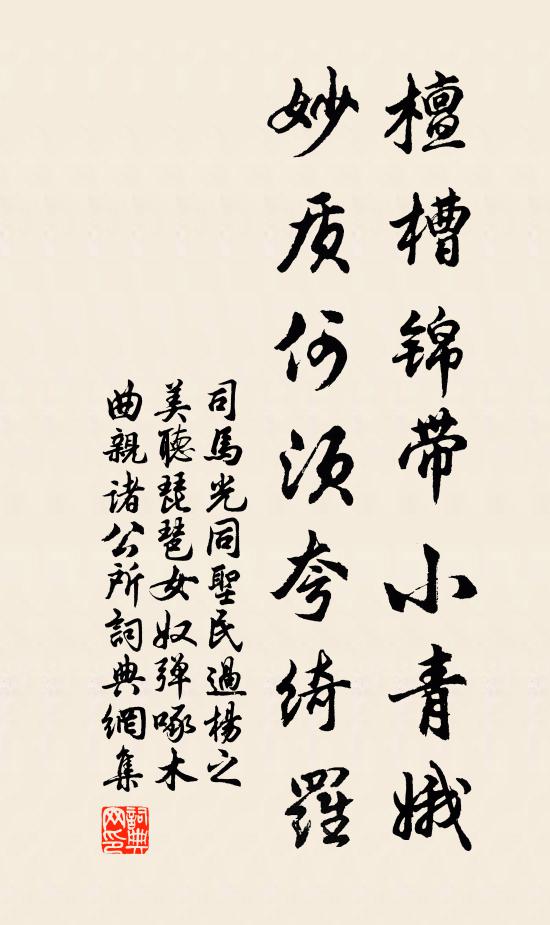 檀槽锦带小青娥
妙质何须夸绮罗
司馬光同聖民過楊之
美聽琵琶女奴弹啄木
曲親诸公所詞典網集
詞典网印